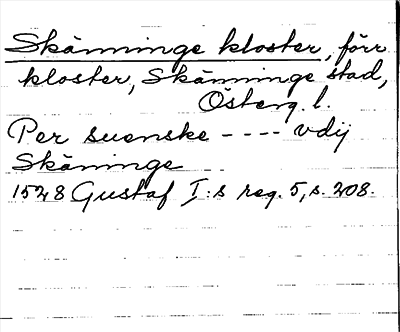 Skänninge kloster, förr
kloster, Skänninge stad,
Österg. l.
Per suenske ---- vdij
Skäninge
1528 Gustaf I:s reg. 5, s. 208.